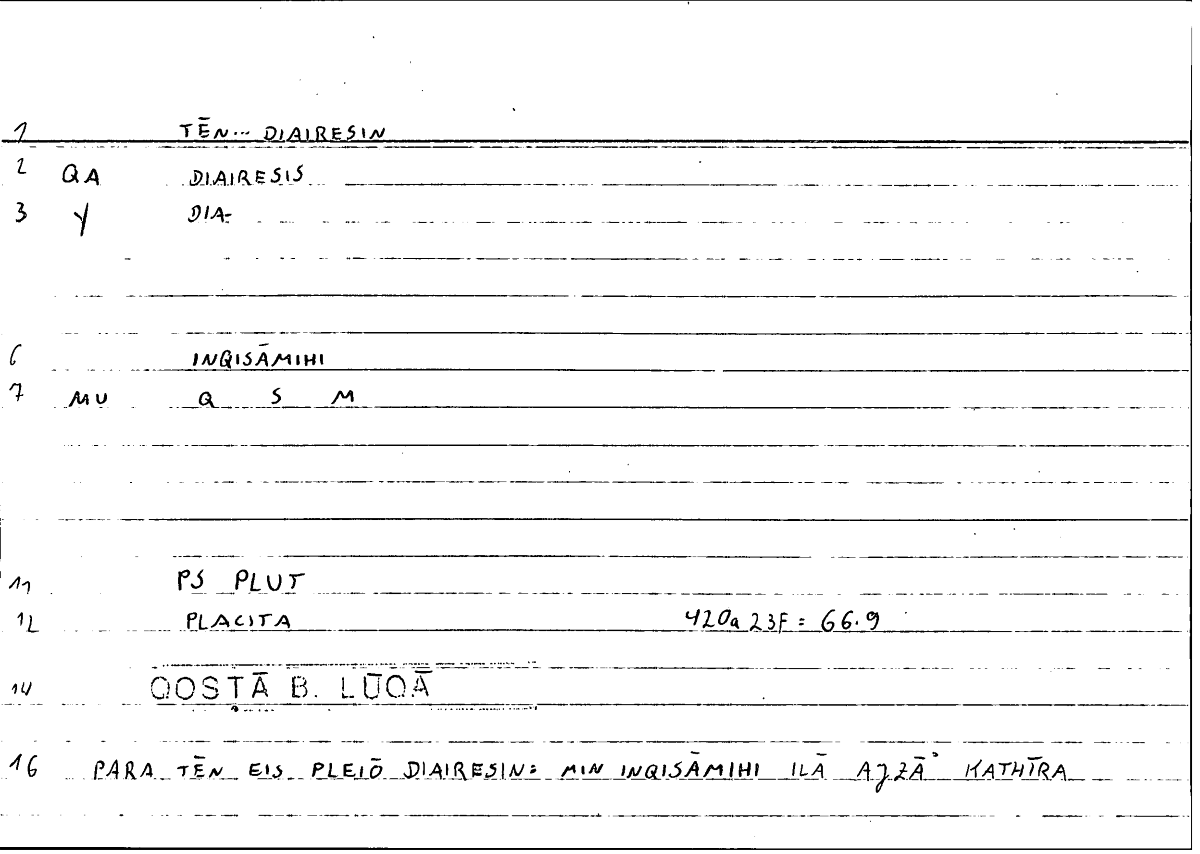 1 TĒN... DIAIRESIN
2 QA DIAIRESIS
3 Y DIA-
6 INQISĀMIHI
7 MU Q S M
11 PS PLUT
12 PLACITA 420a 23F = 66.9
14 QOSTĀ B. LŪQĀ
16 PARA TĒN EIS PLEIŌ DIAIRESIN: MIN INQISĀMIHI ILĀ AJZĀʾ KATHĪRA